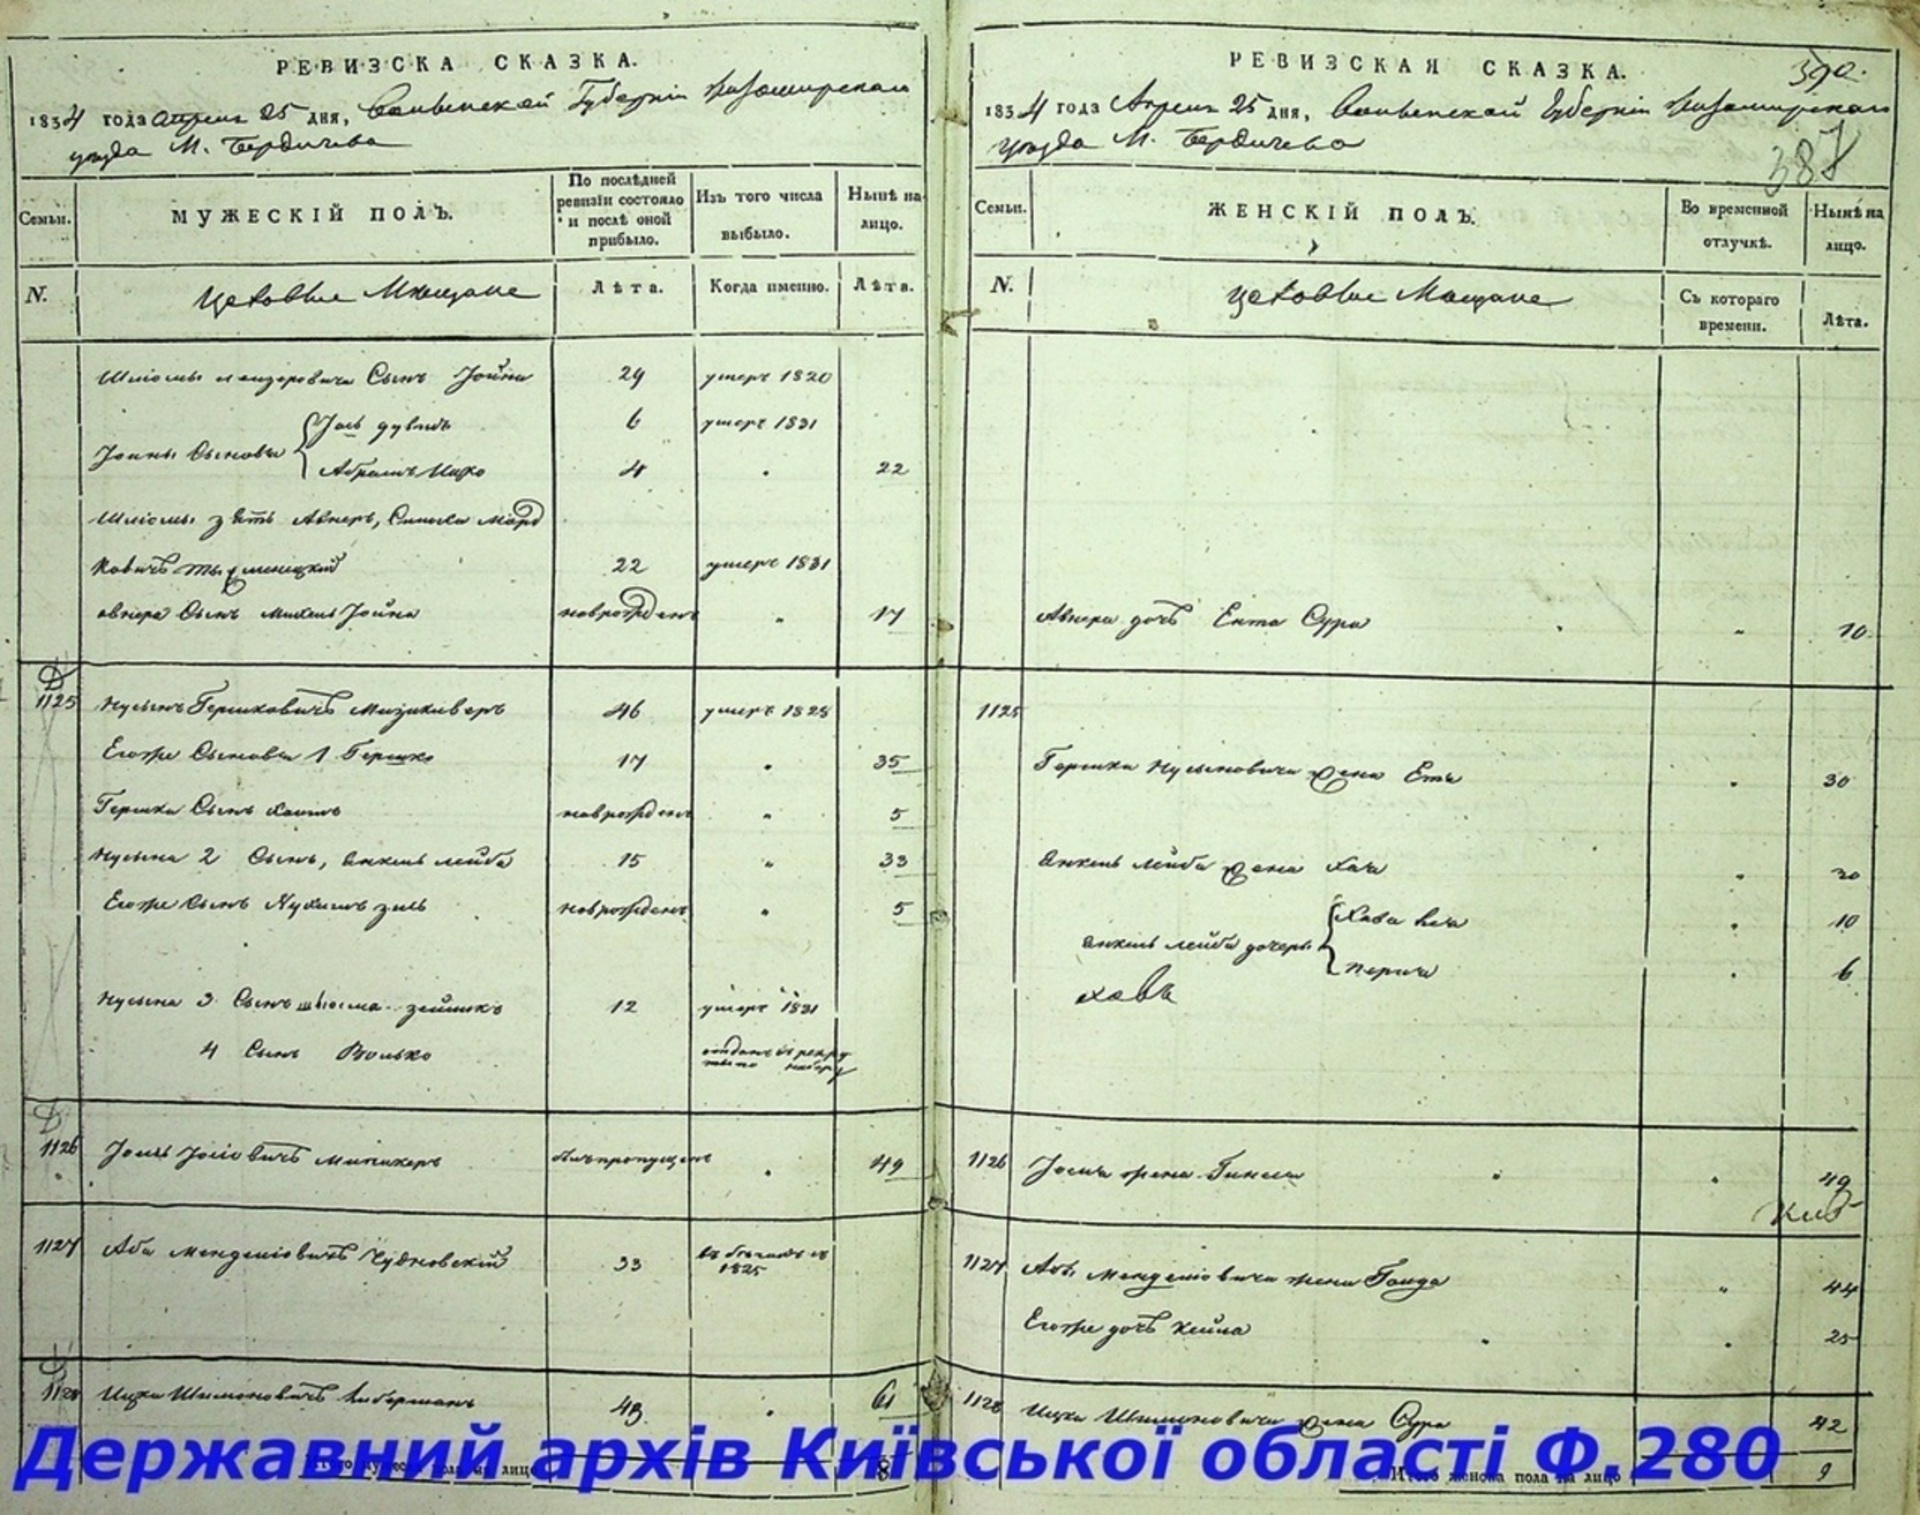 РЕВИЗСКА СКАЗКА.
1834 года Апреля 25 дня, Волынской Губерніи Житомирскаго
уезда М. Бердичева
Семьи.
МУЖЕСКІЙ ПОЛЪ.
По послѣдней ревизіи состояло и послѣ оной прибыло.
Изъ того числа выбыло.
Нынѣ на лицо.
N.
Цеховые Мещане
Лѣта.
Когда именно.
Лѣта.
Шліомы Сынъ Іойна 29 умеръ 1820
Іойны Сыновья Іось Дувидъ 6 умеръ 1831
Абрамъ Ицко 4 22
Шліомы зять Авнеръ, Морд
ковичъ 22 умеръ 1831
Авнера Сынъ Михель Іойна новорожденъ 17
1125 Нусынъ Гершковичъ 46 умеръ 1828
Егоже Сыновья 1 Гершко 17 35
Гершка Сынъ Хаимъ новорожденъ 5
Нусына 2 Сынъ, Янкель Лейба 15 33
Егоже Сынъ Нухимъ новорожденъ 5
Нусына 3 Сынъ 12 умеръ 1831
4 Сынъ Волько отданъ въ рекру
набору
1126 Іось Іосіовичъ былъ пропущенъ 49
1127 Аба Менделіовичъ Чудновскій 33 1825
1128 Ицка Шимоновичъ Либерманъ 43 61
8
РЕВИЗСКАЯ СКАЗКА.
390.
1834 года Апреля 25 дня, Волынской Губерніи Житомирскаго
уезда М. Бердичева
387
Семьи.
ЖЕНСКІЙ ПОЛЪ.
Во временной отлучкѣ.
Нынѣ на лицо.
N.
Цеховые Мещане
Съ котораго времени.
Лѣта.
Авнера дочь Ента Сура 10
1125
Гершка Нусыновича жена Етя 30
Янкель Лейба жена Хая 30
Янкель Лейбы дочери Хава 10
Перля 6
1126 Іося жена 49
1127 Абы Менделіовича жена Голда 44
Егоже дочь Хейна 25
1128 Ицка Шимоновича жена Сура 42
Итого женска пола на лицо 9
Державний архів Київської області Ф.280